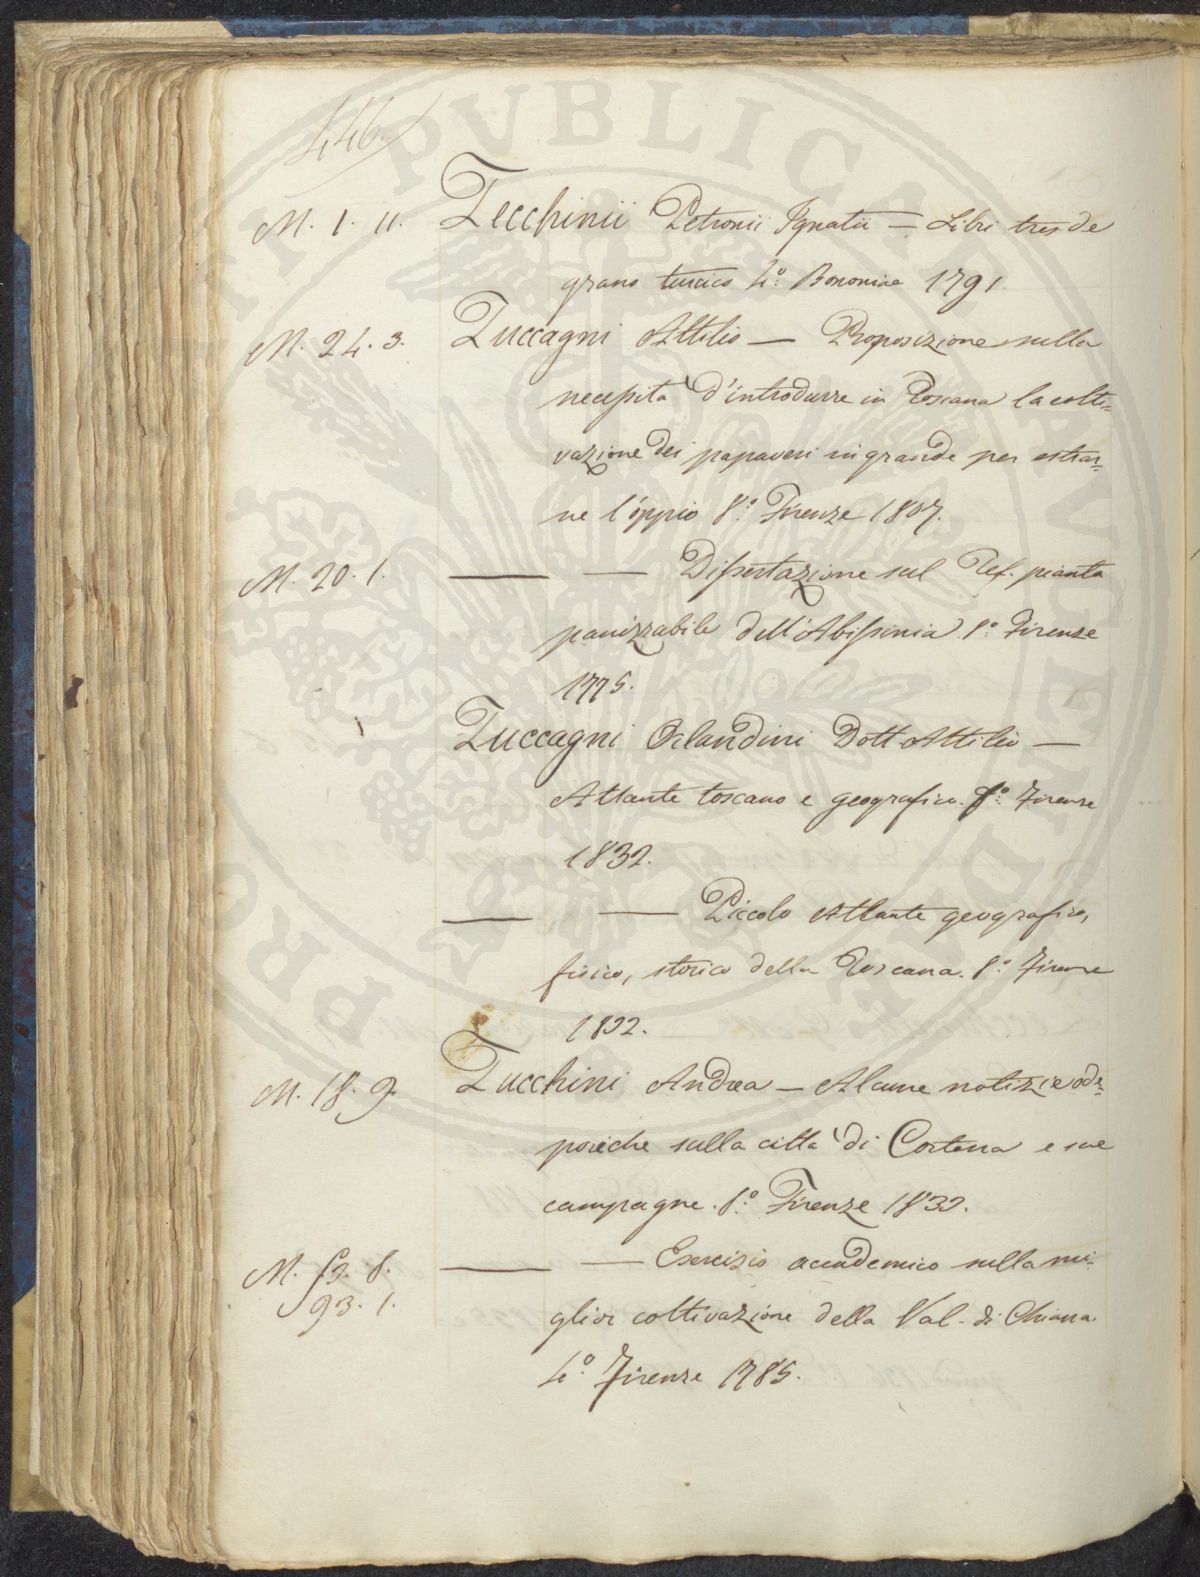 446.
M. 1. 11. Zecchinii Petronii Ignatii = Libri tres de
grano turcico 4.º Bononiae 1791.
M. 24. 3. Zuccagni Attilio — Proposizione sulla
necessità d'introdurre in Toscana la colti-
vazione dei papaveri in grande per estrar-
ne l'oppio 8.º Firenze 1807.
M. 20. 1. — — Dissertazione sul Tef. pianta
panizzabile dell'Abissinia. 8.º Firenze
1775.
Zuccagni Orlandini Dott. Attilio —
Atlante toscano e geografico. fº. Firenze
1832.
— — Piccolo Atlante geografico,
fisico, storico della Toscana. 8.º Firenze
1832.
M. 18. 9. Zucchini Andrea — Alcune notizie ode-
poriche sulla città di Cortona e sue
campagne. 8.º Firenze 1832.
M. 53. 8. — — Esercizio accademico sulla mi-
93. 1. glior coltivazione della Val-di Chiana.
4.º Firenze 1785.
PROSPERITATI PVBLICAE AVGENDAE